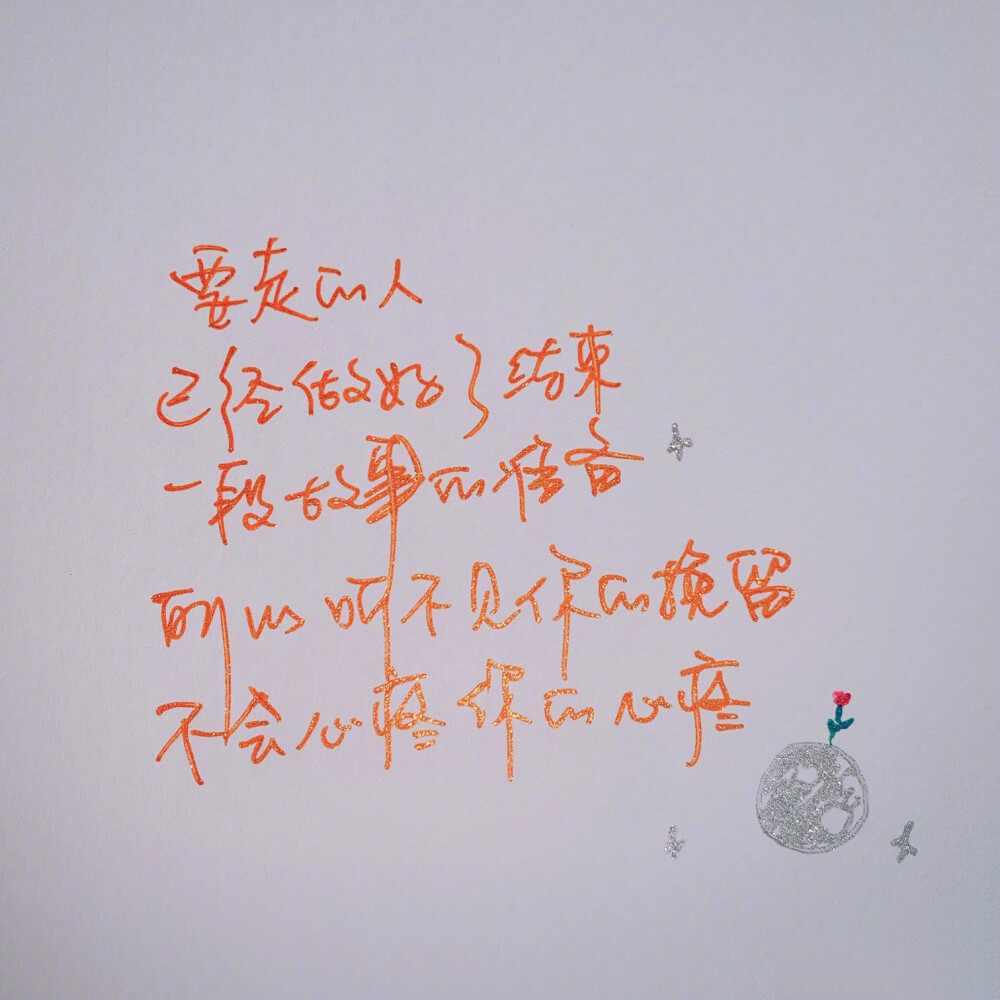 要走的人
已经做好了结束
一段故事的准备
所以听不见你的挽留
不会心疼你的心疼